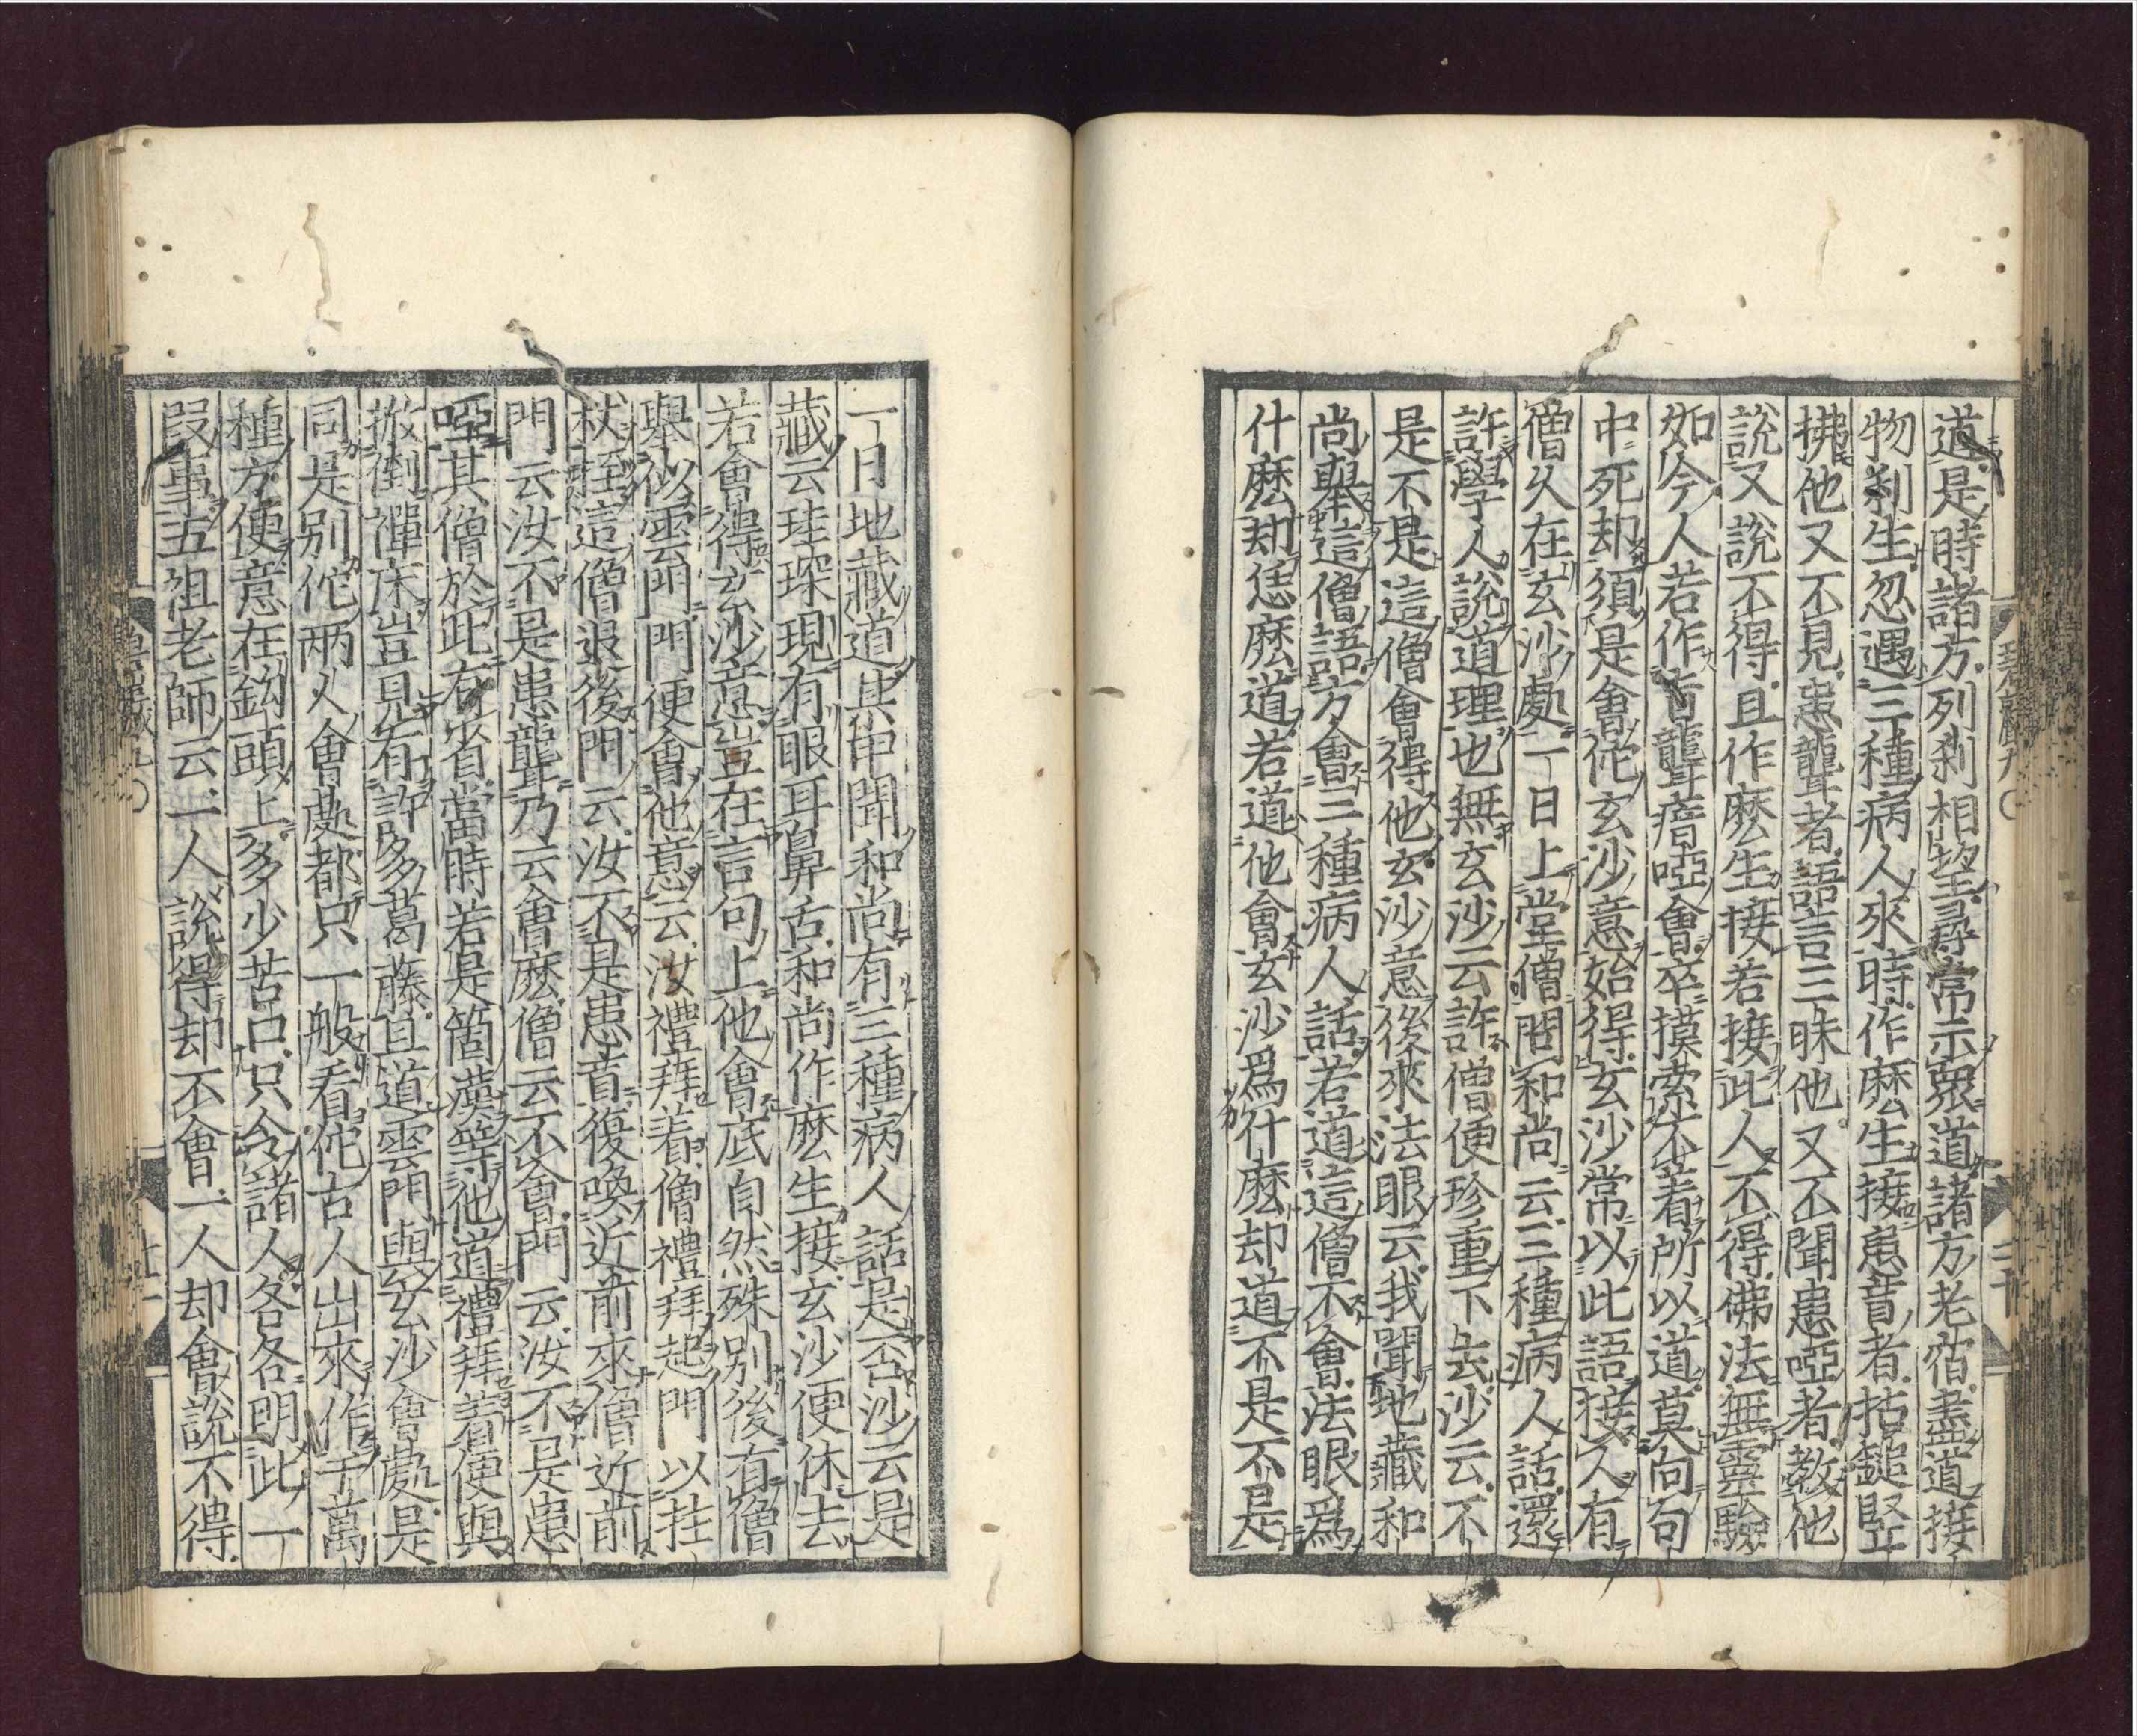 道是時諸方列刹相望尋常示衆道諸方老宿盡道接
物利生忽遇三種病人來時作麽生接患盲者拈鎚竪
拂他又不見患聾者語言三昧他又不聞患啞者教他
說又說不得且作麽生接若接此人不得佛法無靈驗
如今人若作盲聾瘖啞會卒摸索不著所以道莫向句
中死却須是會佗玄沙意始得玄沙常以此語接人有
僧久在玄沙處一日上堂僧問和尚云三種病人話還
許學人說道理也無玄沙云許僧便珍重下去沙云不
是不是這僧會得他玄沙意後來法眼云我聞地藏和
尚舉這僧語方會三種病人話若道這僧不會法眼爲
什麽却恁麽道若道他會玄沙爲什麽却道不是不是
一日地藏道某甲聞和尚有三種病人話是否沙云是
藏云珪琛現有眼耳鼻舌和尚作麽生接玄沙便休去
若會得玄沙意豈在言句上他會底自然殊別後有僧
舉似雲門門便會他意云汝禮拜著僧禮拜起門以拄
杖挃這僧退後門云汝不是患盲復喚近前來僧近前
門云汝不是患聾乃云會麽僧云不會門云汝不是患
啞其僧於此有省當時若是箇漢等他道禮拜著便與
掀倒禪床豈見有許多葛藤且道雲門與玄沙會處是
同是別佗兩人會處都只一般看佗古人出來作千萬
種方便意在鈎頭上多少苦口只令諸人各各明此一
段事五祖老師云一人說得却不會一人却會說不得